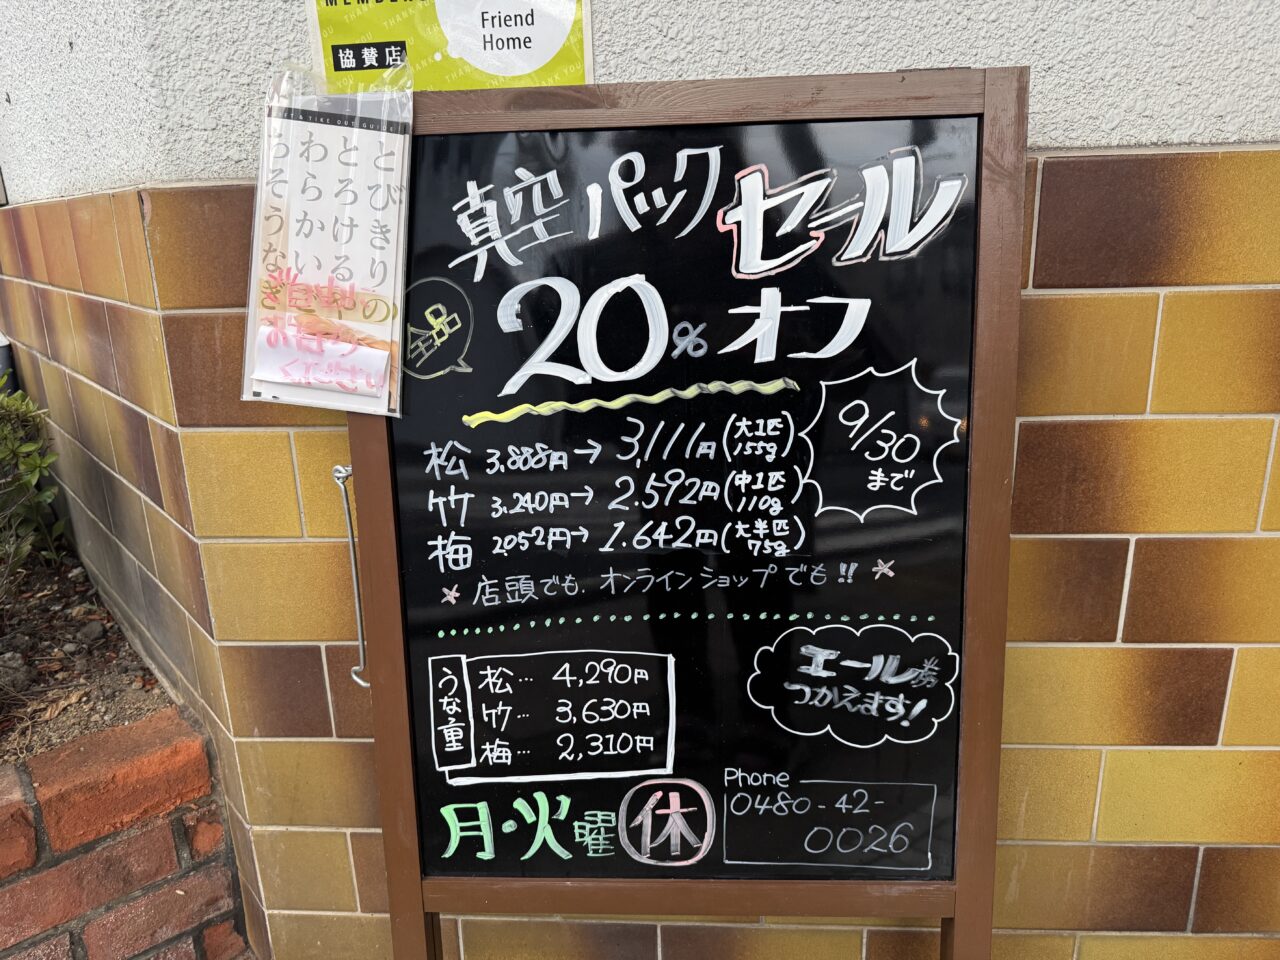 Friend
Home
協賛店
THANK YOU
& TAKE OUT GUIDE
とびきりの
とろける
わらかい
うそうなぎ
ご自由に
お持ち
ください
真空パックセール
全品
20%オフ
9/30
まで
松 3,888円→3,111円(大1匹 155g)
竹 3,240円→2.592円(中1匹 110g)
梅 2,052円→1.642円(大半匹 75g)
*店頭でも、オンラインショップでも!!*
うな重
松… 4,290円
竹… 3,630円
梅… 2,310円
エール券
つかえます!
月・火曜休
Phone
0480-42-
0026